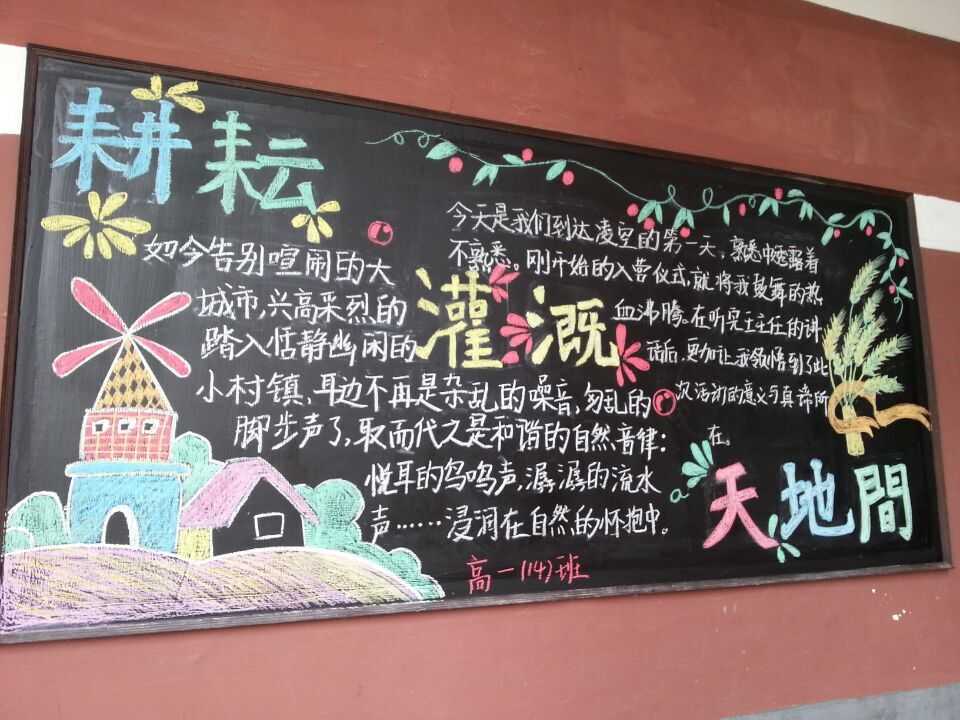 耕耘
如今告别喧闹的大
城市,兴高采烈的
踏入恬静幽闲的
小村镇、耳边不再是杂乱的噪音,匆乱的
脚步声了,取而代之是和谐的自然音律:
悦耳的鸟鸣声,潺潺的流水
声……浸润在自然的怀抱中。
灌溉
今天是我们到达凌空的第一天、熟悉中透露着
不熟悉。刚开始的入营仪式,就将我鼓舞的热
血沸腾。在听完王主任的讲
话后,更加让我领悟到了此
次活动的意义与真谛所
在。
天地間
高一(14)班